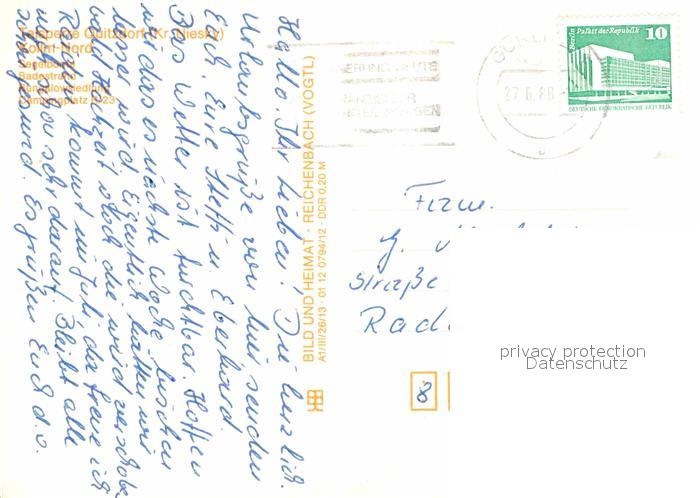 Talsperre Quitzdorf (Kr. Niesky)
Kollm-Nord
Segelboote
Badestrand
Bungalowsiedlung
Campingplatz
Hallo, Ihr Lieben! Die herzlich.
Urlaubsgrüße von hier senden
Euch Eure Steffi u Eberhard.
Das Wetter ist furchtbar. Hoffen
wir das es nächste Woche bischen
besser wird. Eigentlich hätten wir
die wird verschobe
kommt im Juli, da freue ich
mich schon sehr darauf. Bleibt alle
schön gesund. Es grüßen Euch d.o.
BILD UND HEIMAT · REICHENBACH (VOGTL)
A1/III/26/13 · 01 12 0794/12 · DDR 0,20 M
GÖRLI
27.6.88
Berlin Palast der Republik
10
DEUTSCHE DEMOKRATISCHE REPUBLIK
Firma
G.
Straße
Rad
8
privacy protection
Datenschutz